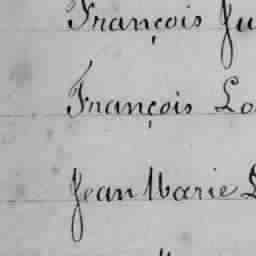 François Ju
François Lo
Jean Marie L